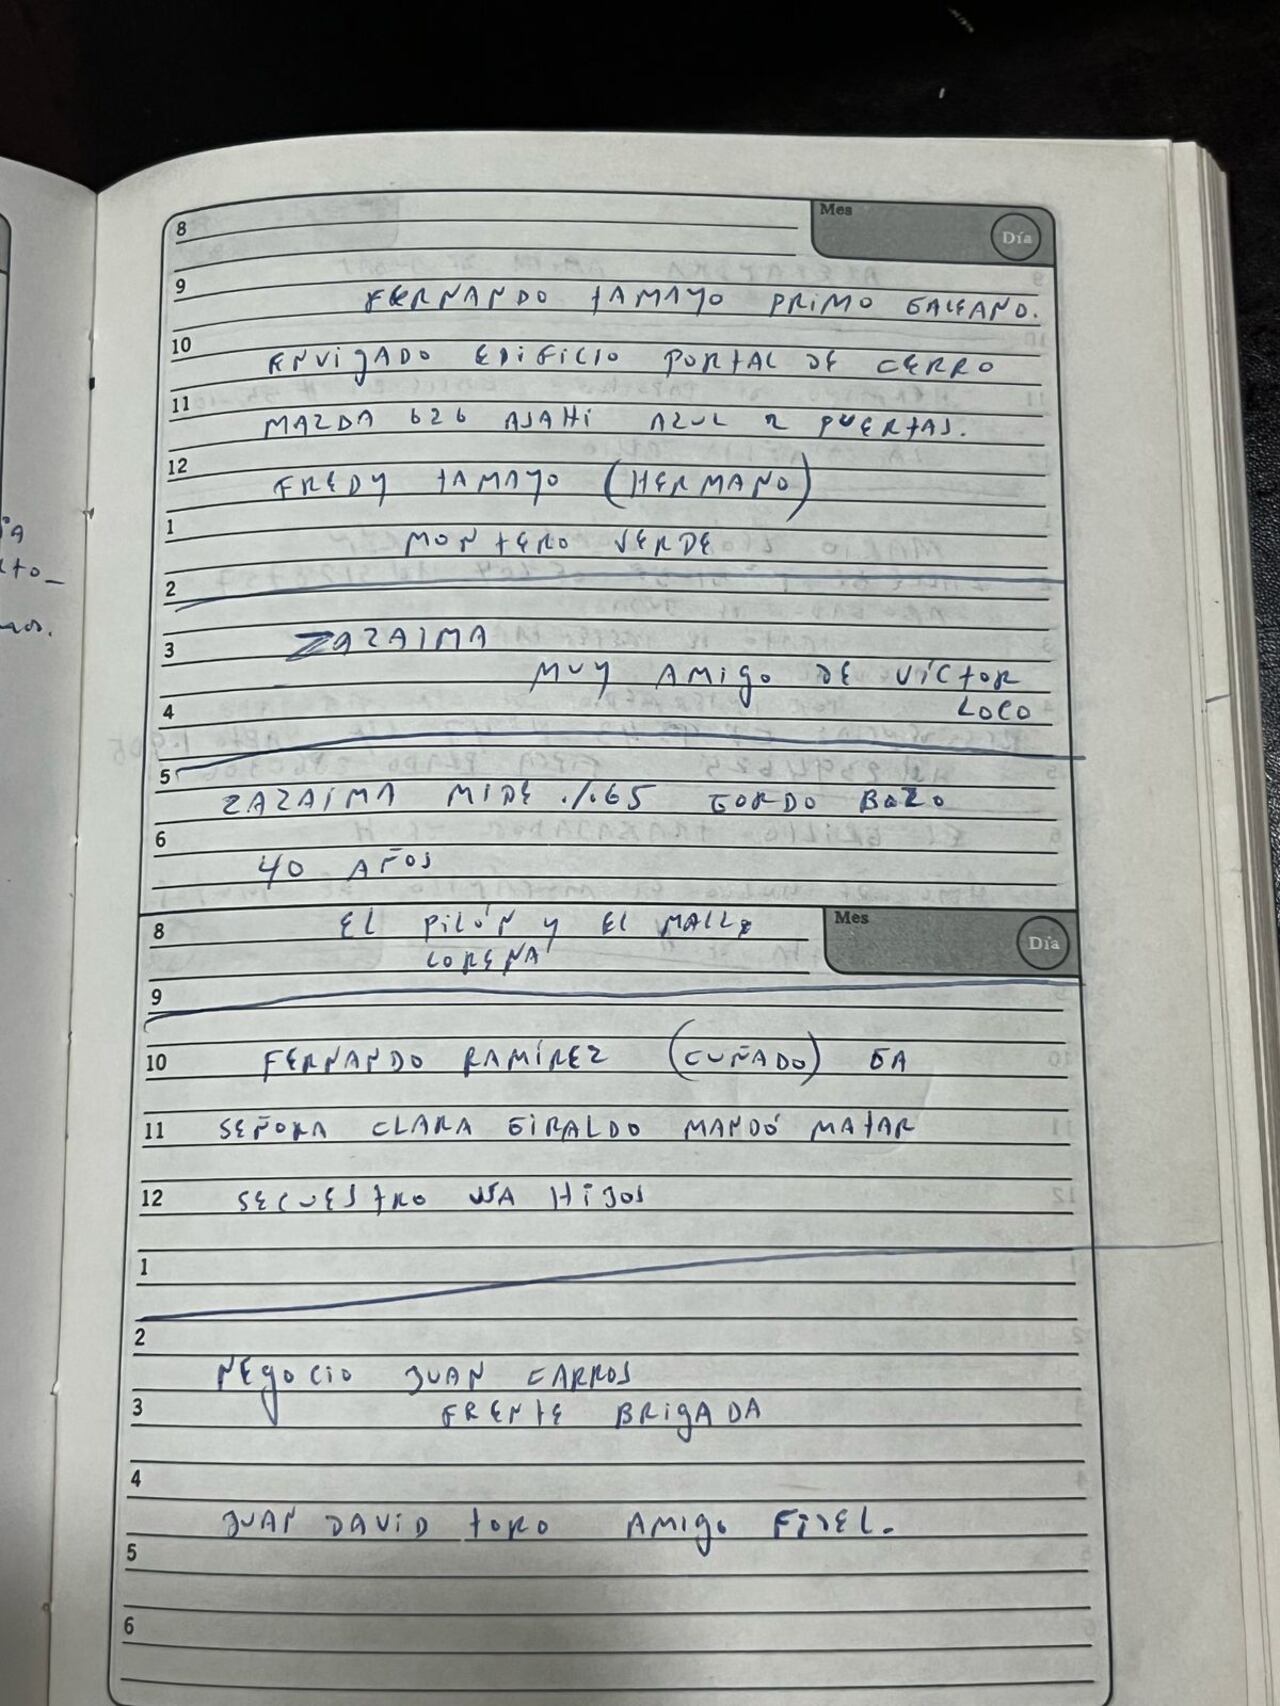 8
Mes
Día
9
FERNANDO TAMAYO PRIMO GALEANO.
10
ENVIGADO EDIFICIO PORTAL DE CERRO
11
MAZDA 626 ASAHI AZUL 2 PUERTAS.
12
FREDY TAMAYO (HERMANO)
1
MONTERO VERDE
2
3
ZAZAIMA
MUY AMIGO DE VÍCTOR
4
LOCO
5
ZAZAIMA MIDE 1.65 GORDO BOZO
6
40 AÑOS
8
EL PILÓN Y EL MALLE
Mes
Día
LORENA
9
10
FERNANDO RAMÍREZ (CUÑADO) GA
11
SEÑORA CLARA GIRALDO MANDÓ MATAR
12
SECUESTRO HIJOS
1
2
NEGOCIO JUAN CARROS
3
FRENTE BRIGADA
4
JUAN DAVID TORO AMIGO FIDEL.
5
6